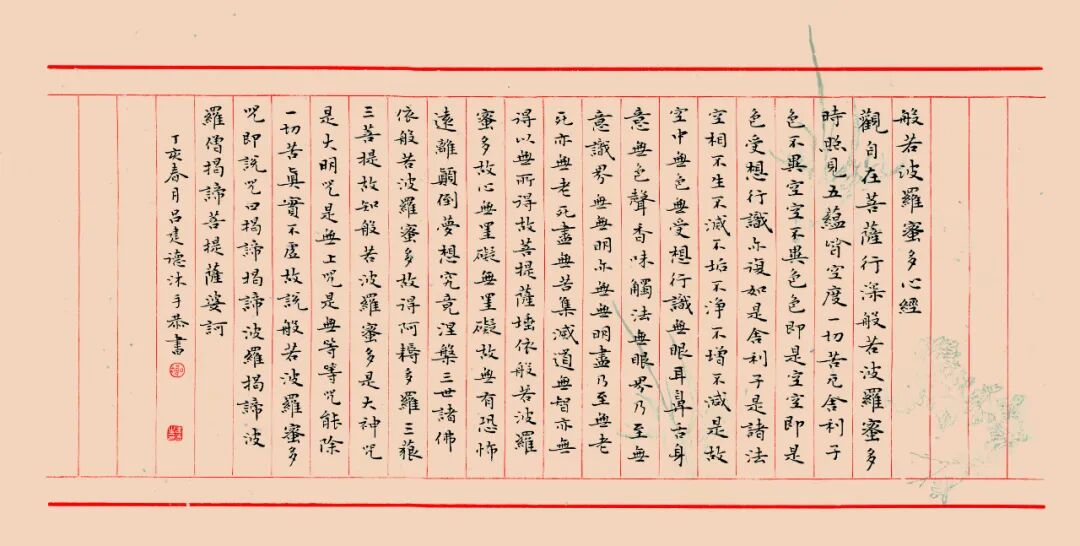 般若波羅蜜多心經
觀自在菩薩行深般若波羅蜜多
時照見五蘊皆空度一切苦厄舍利子
色不異空空不異色色即是空空即是
色受想行識亦復如是舍利子是諸法
空相不生不滅不垢不淨不增不減是故
空中無色無受想行識無眼耳鼻舌身
意無色聲香味觸法無眼界乃至無
意識界無無明亦無無明盡乃至無老
死亦無老死盡無苦集滅道無智亦無
得以無所得故菩提薩埵依般若波羅
蜜多故心無罣礙無罣礙故無有恐怖
遠離顛倒夢想究竟涅槃三世諸佛
依般若波羅蜜多故得阿耨多羅三藐
三菩提故知般若波羅蜜多是大神咒
是大明咒是無上咒是無等等咒能除
一切苦眞實不虛故說般若波羅蜜多
咒即說咒曰揭諦揭諦波羅揭諦波
羅僧揭諦菩提薩婆訶
丁亥春月呂建德沐手恭書